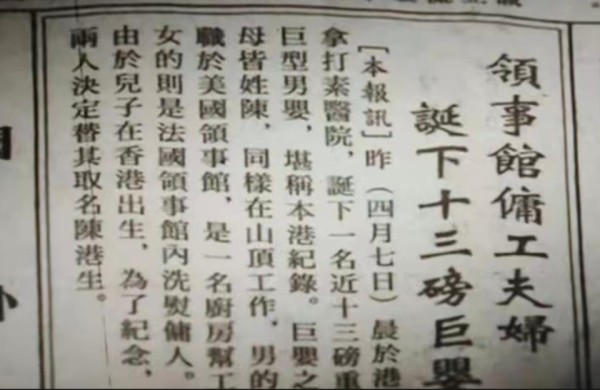 領事館傭工夫婦
誕下十三磅巨嬰
［本報訊］昨（四月七日）晨於港
拿打素醫院，誕下一名近十三磅重
巨型男嬰，堪稱本港紀錄。巨嬰之
母皆姓陳，同樣在山頂工作，男的
職於美國領事館，是一名廚房幫工
女的則是法國領事館內洗熨傭人。
由於兒子在香港出生，為了紀念，
兩人決定替其取名陳港生。